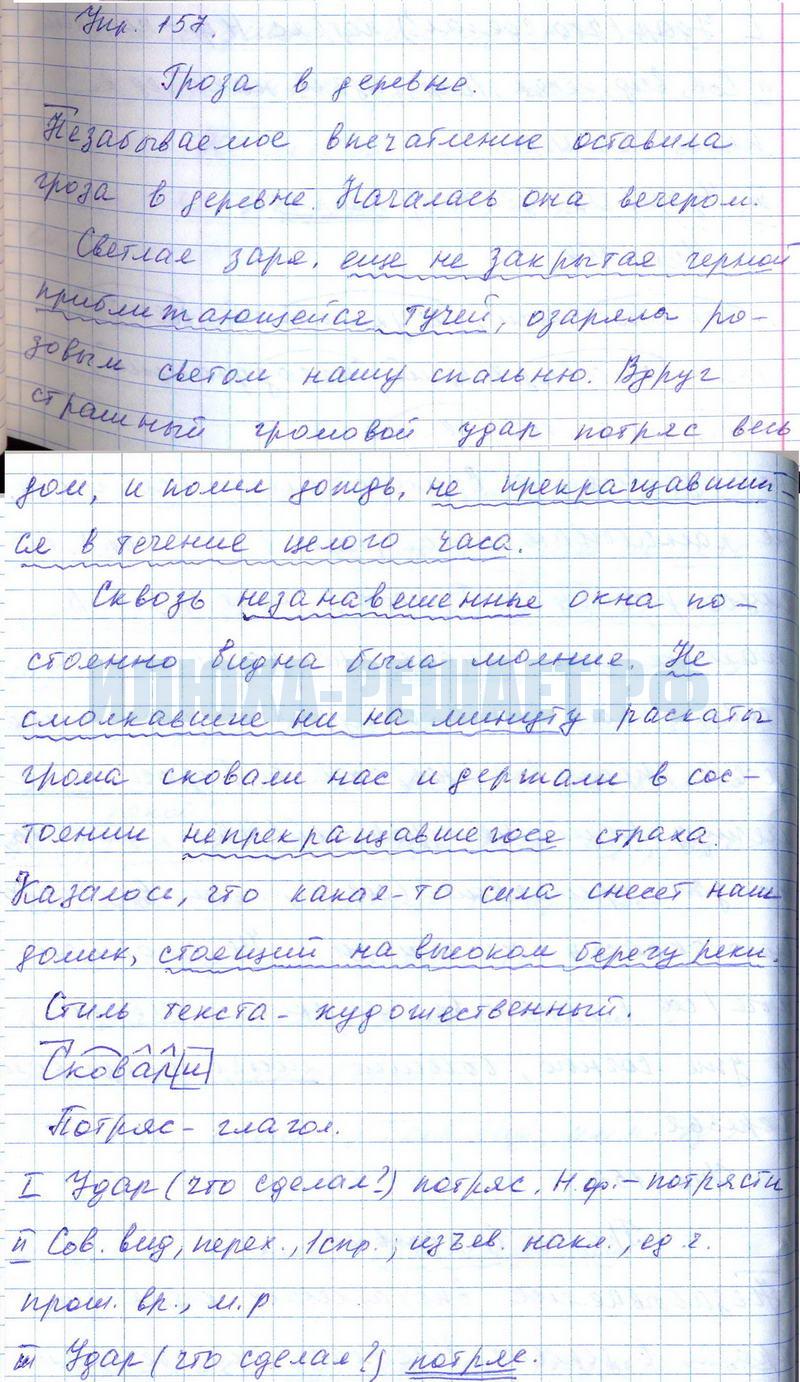 Упр. 157.
Гроза в деревне.
Незабываемое впечатление оставила
гроза в деревне. Началась она вечером.
Светлая заря, еще не закрытая черной
приближающейся тучей, озаряла ро-
зовым светом нашу спальню. Вдруг
страшный громовой удар потряс весь
дом, и полил дождь, не прекращавший-
ся в течение целого часа.
Сквозь незанавешенные окна по-
стоянно видна была молния. Не
смолкавшие ни на минуту раскаты
грома сковали нас и держали в сос-
тоянии непрекращавшегося страха.
Казалось, что какая-то сила снесет наш
домик, стоящий на высоком берегу реки.
Стиль текста - художественный.
Сковали
Потряс - глагол.
I Удар (что сделал?) потряс. Н.ф. - потрясти
II Сов. вид, перех., 1 спр., изъев. накл., ед. ч.
прош. вр., м.р
III Удар (что сделал?) потряс.
ИЛЮХА-РЕШАЕТ.РФ